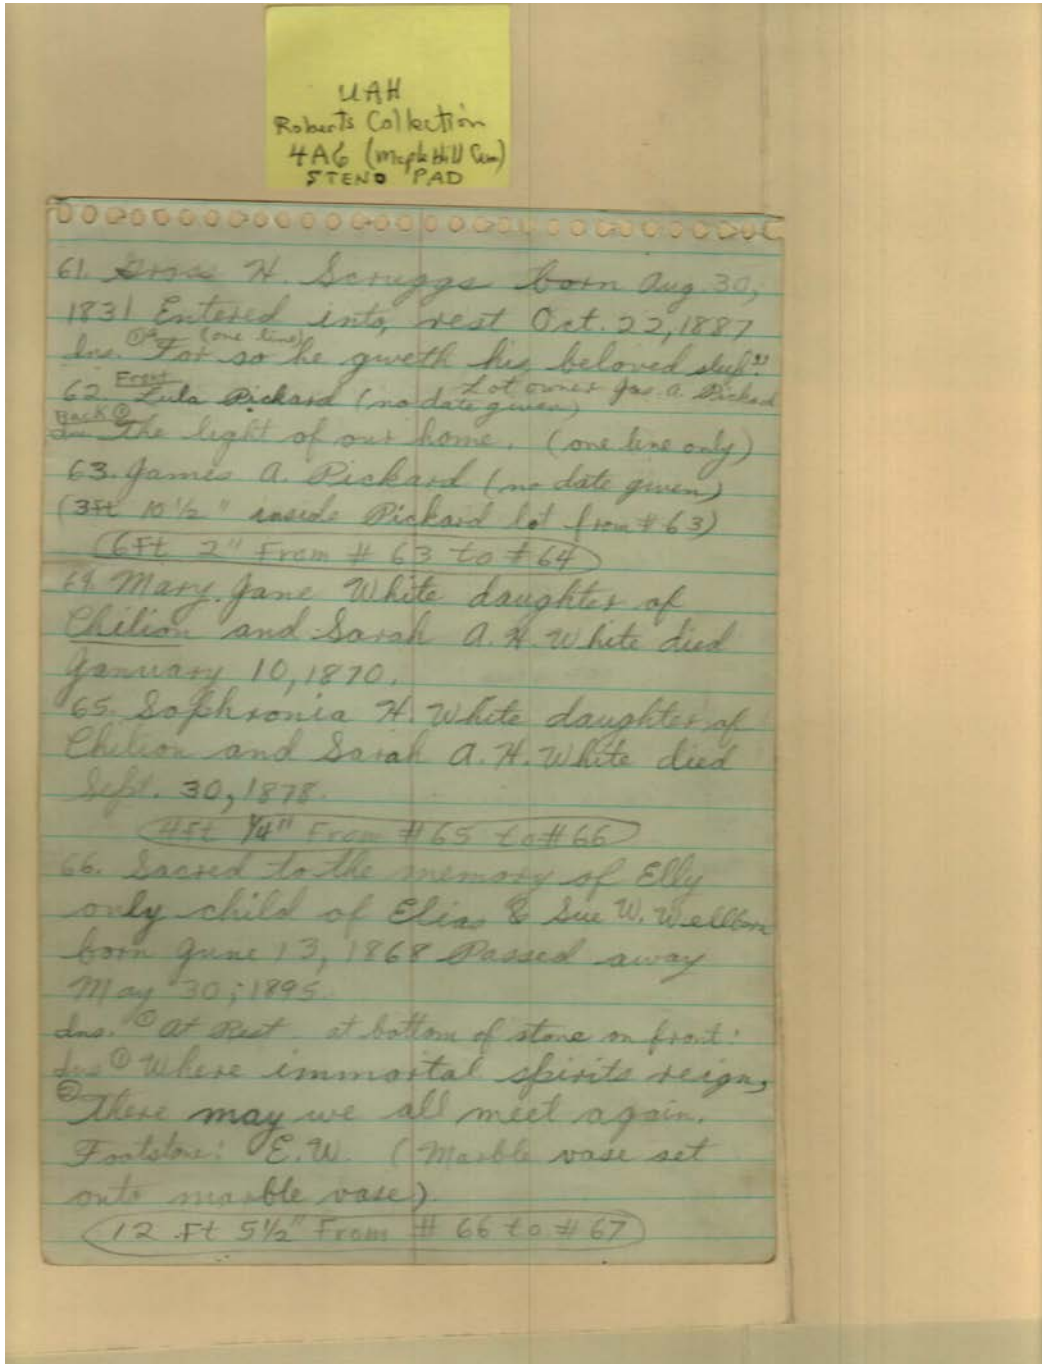 UAH
Roberts Collection
4A6 (Maple Hill Cem)
STENO PAD
61. Gross H. Scruggs born Aug. 30,
1831 Entered into rest Oct. 22, 1887
(one line)
Ins. ① "For so he giveth his beloved sleep."
Front Lot owner Jas. A. Pickard
62. Lula Pickard (no date given)
Back ①
Ins. The light of our home. (one line only)
63. James A. Pickard (no date given)
(3ft 10 1/2" inside Pickard lot from # 63)
6ft 2" From # 63 to # 64
64. Mary Jane White daughter of
Chilion and Sarah A. H. White died
January 10, 1870.
65. Sophronia H. White daughter of
Chilion and Sarah A. H. White died
Sept. 30, 1878.
4ft 1/4" From # 65 to # 66
66. Sacred to the memory of Elly
only child of Elias & Sue W. Wellborn
born June 13, 1868 Passed away
May 30, 1895.
Ins. ① At Rest at bottom of stone on front:
Ins ① Where immortal spirits reign,
② There may we all meet again.
Footstone: E.W. (Marble vase set
onto marble vase)
12 Ft 5 1/2" From # 66 to # 67